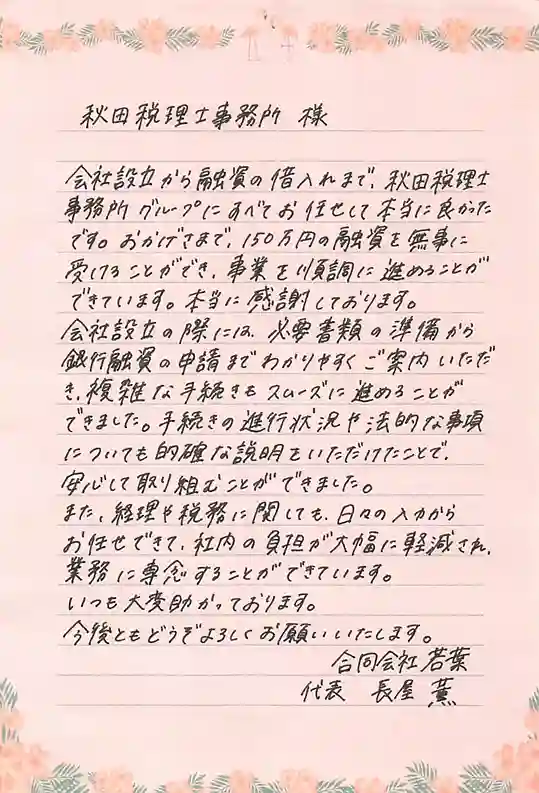 秋田税理士事務所 様
会社設立から融資の借入れまで、秋田税理士
事務所グループにすべてお任せして本当に良かった
です。おかげさまで、150万円の融資を無事に
受けることができ、事業を順調に進めることが
できています。本当に感謝しております。
会社設立の際には、必要書類の準備から
銀行融資の申請までわかりやすくご案内いただ
き、複雑な手続きもスムーズに進めることが
できました。手続きの進行状況や法的な事項
についても的確な説明をいただけたことで、
安心して取り組むことができました。
また、経理や税務に関しても、日々の入力から
お任せできて、社内の負担が大幅に軽減され、
業務に専念することができています。
いつも大変助かっております。
今後ともどうぞよろしくお願いいたします。
合同会社 若葉
代表 長屋 薫